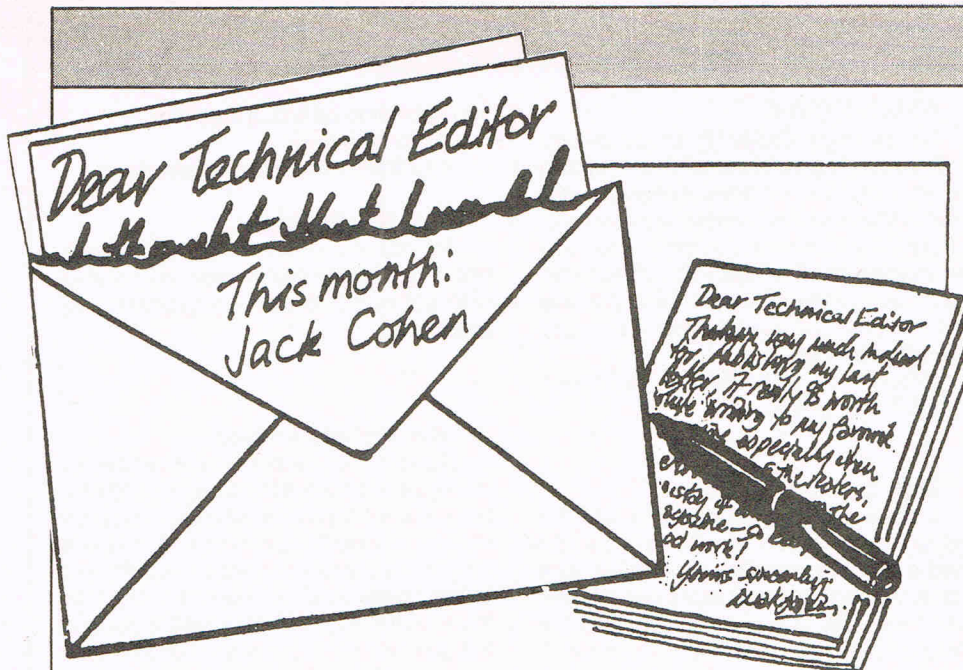 Dear Technical Editor
I thought that I would
This month:
Jack Cohen
Dear Technical Editor
Thankyou very much indeed
for publishing my last
letter, it really is worth
while writing to my favorite
especially when
the readers,
of the
magazine – so keep
work!
Yours sincerely